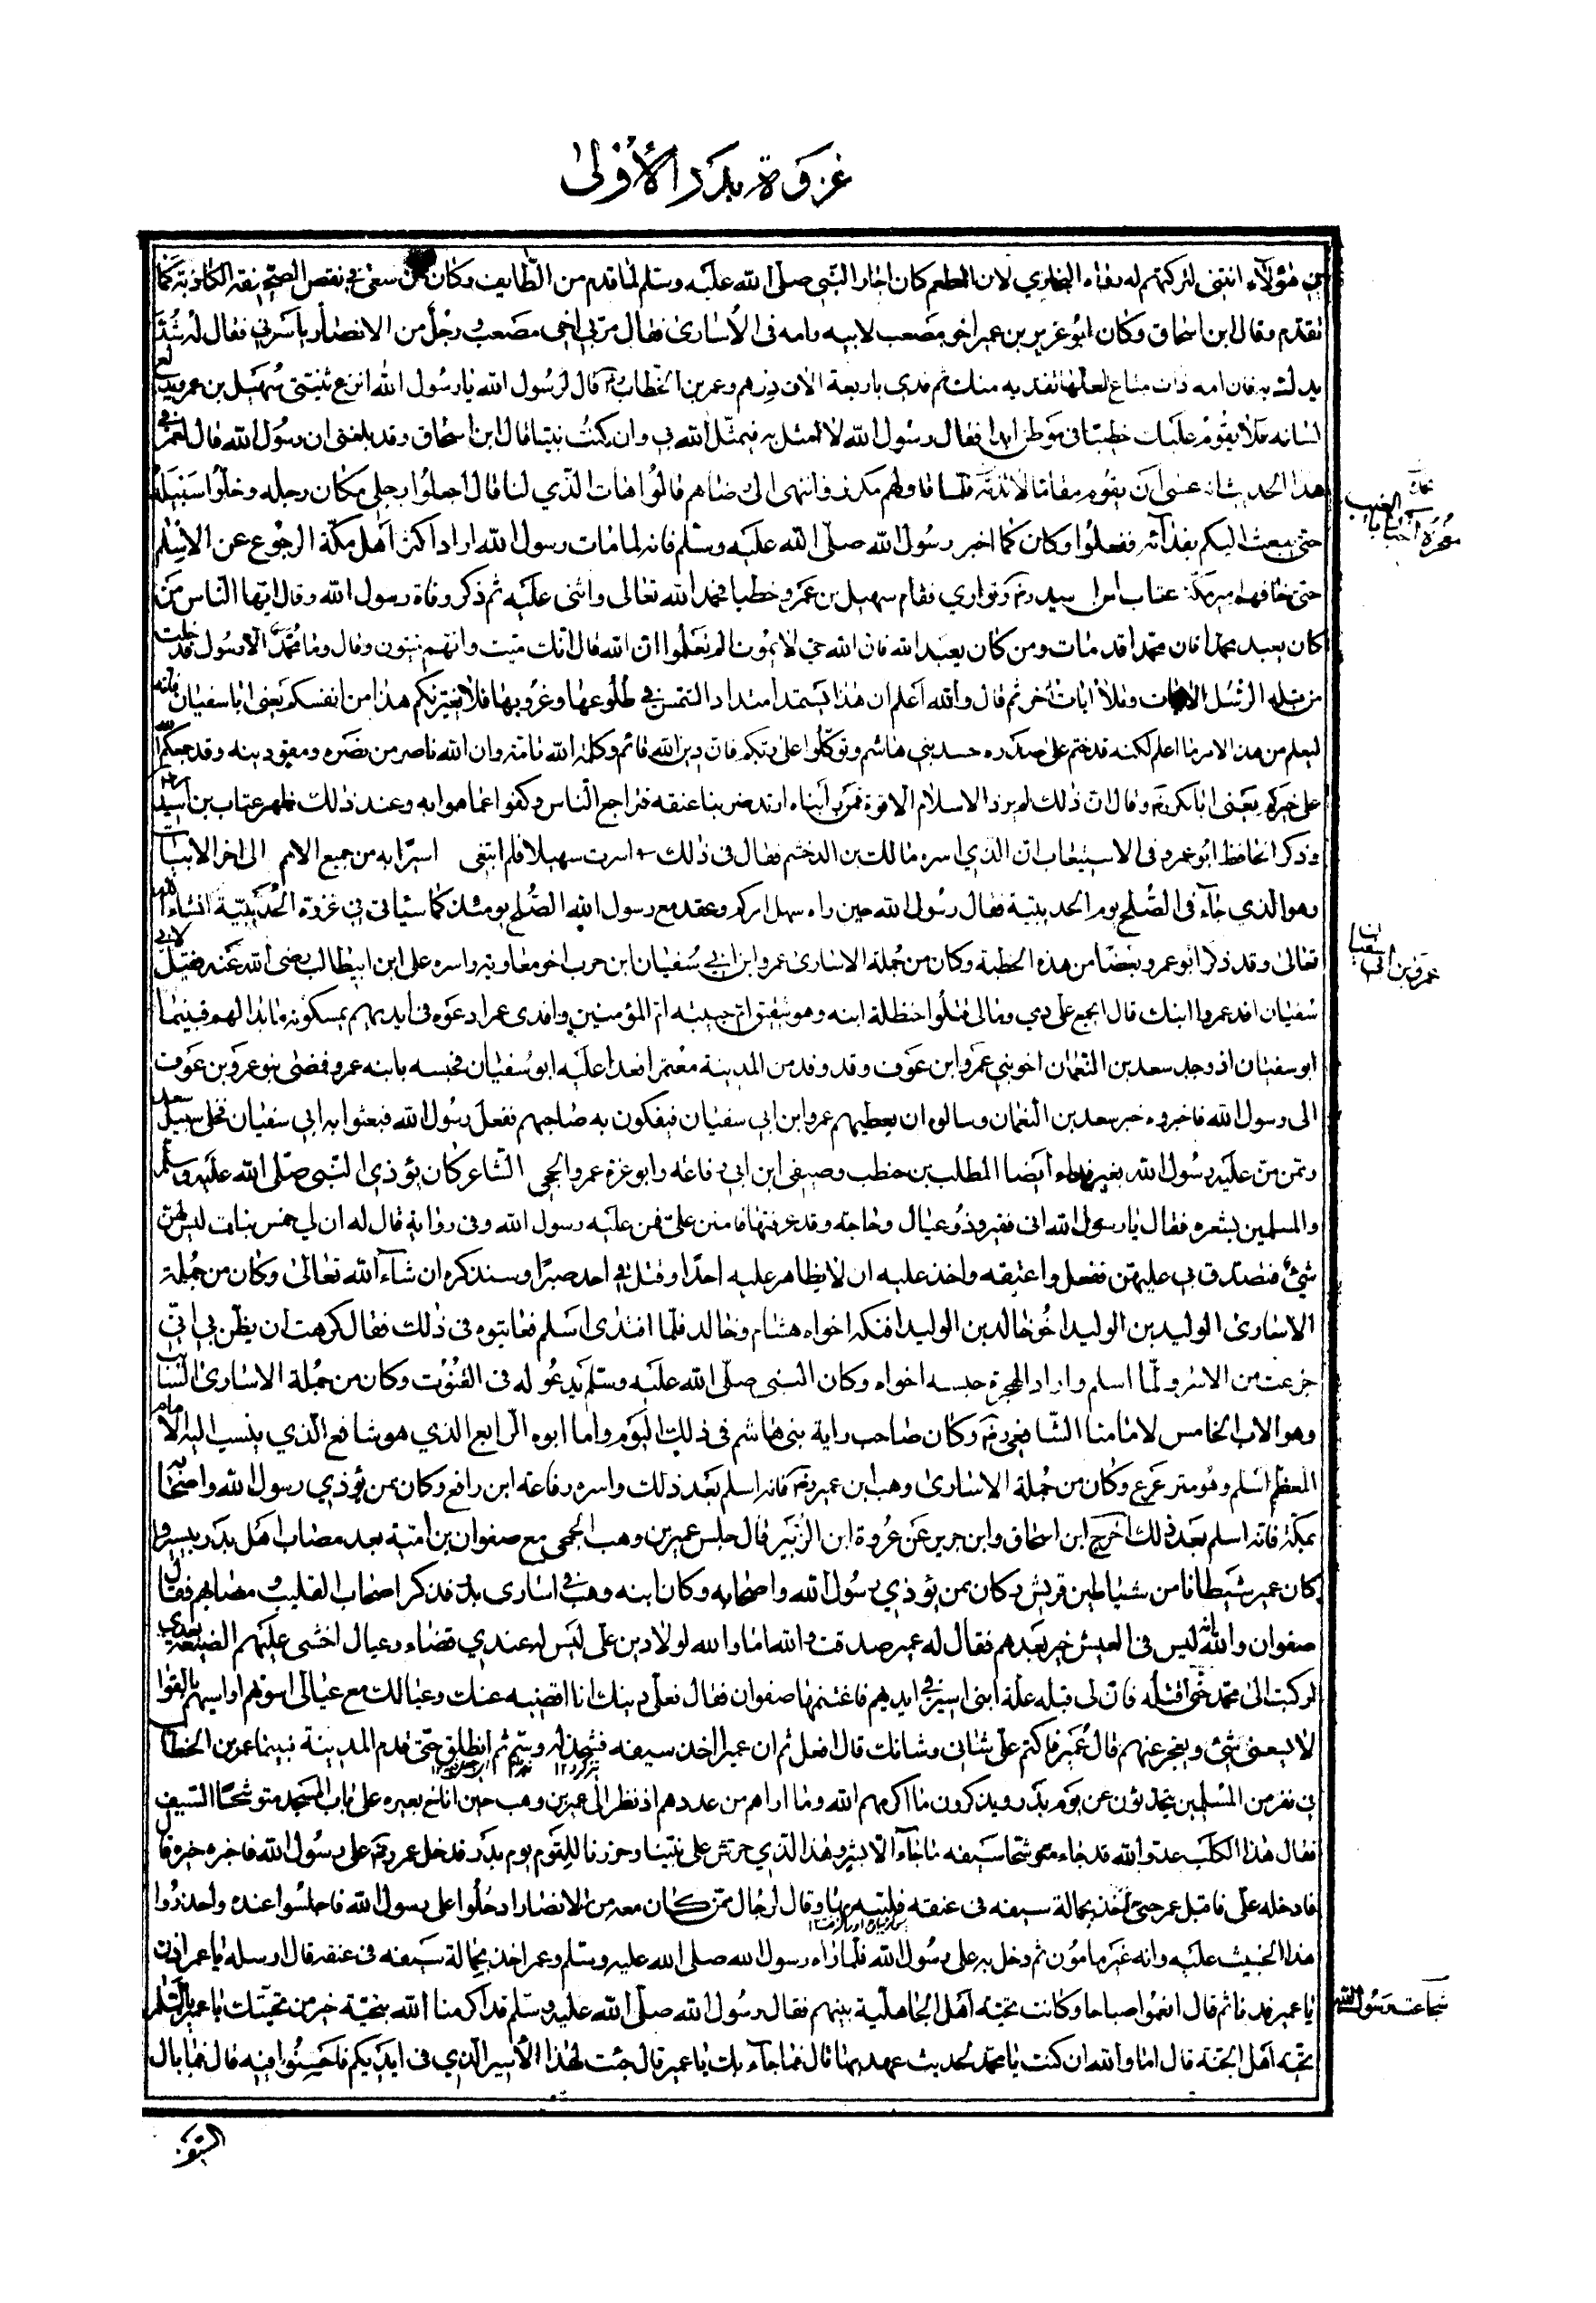 غزوة بدر الأولى
في هؤلاء النتنى لتركتهم له رواه البخاري لان المطعم كان اجار النبي صلى الله عليه وسلم لما قدم من الطايف وكان ممن سعى في نقض الصحيفة الكاذبة كما
تقدم وقال ابن اسحاق وكان ابو عزيز بن عمير اخو مصعب لابيه وامه في الاسارى فقال مر بي اخي مصعب ورجل من الانصار يأسرني فقال له شد
يدك به فان امه ذات متاع لعلها تفديه منك ثم فدي باربعة الاف درهم وعمر بن الخطاب قال لرسول الله يا رسول الله انزع ثنيتي سهيل بن عمرو يدلع
لسانه فلا يقوم عليك خطيبا في موطن ابدا فقال رسول الله لا امثل به فيمثل الله بي وان كنت نبيا قال ابن اسحاق وقد بلغني ان رسول الله قال لعمر في
هذا الحديث انه عسى ان يقوم مقاما لا تذمه فلما قاولهم مكرز وانتهى الى رضاهم قالوا هات الذي لنا قال اجعلوا رجلي مكان رجله وخلوا سبيله
حتى يبعث اليكم بفدائه ففعلوا وكان كما اخبر رسول الله صلى الله عليه وسلم فانه لما مات رسول الله اراد اكثر اهل مكة الرجوع عن الاسلام
حتى خافهم امير مكة عتاب ابن اسيد رضي وتوارى فقام سهيل بن عمرو خطيبا فحمد الله تعالى واثنى عليه ثم ذكر وفاة رسول الله وقال ايها الناس من
كان يعبد محمدا فان محمدا قد مات ومن كان يعبد الله فان الله حي لا يموت الم تعلموا ان الله قال انك ميت وانهم ميتون وقال وما محمد الا رسول قد خلت
من قبله الرسل الايات وتلا ايات اخر ثم قال والله اعلم ان هذا يستمد امتداد الشمس في طلوعها وغروبها فلا يغرنكم هذا من انفسكم يعني ابا سفيان فانه
ليعلم من هذا الامر ما اعلم لكنه قد ختم على صدره حسد بني هاشم وتوكلوا على ربكم فان دين الله قائم وكلمة الله تامة وان الله ناصر من نصره ومقو دينه وقد جمعكم الله
على خيركم يعني ابا بكر رضي وقال ان ذلك لم يزد الاسلام الا قوة فمن رايناه ارتد ضربنا عنقه فتراجع الناس وكفوا عما هموا به وعند ذلك ظهر عتاب بن اسيد
وذكر الحافظ ابو عمرو في الاستيعاب ان الذي اسره مالك بن الدخشم فقال في ذلك اسرت سهيلا فلم ابتغي اسيرا به من جميع الامم الى اخر الابيات
وهو الذي جاء في الصلح يوم الحديبية فقال رسول الله حين راه سهل امركم وعقد مع رسول الله الصلح يومئذ كما سياتي في غزوة الحديبية انشاء الله
تعالى وقد ذكر ابو عمرو بعضا من هذه الخطبة وكان من جملة الاسارى عمرو ابن ابي سفيان ابن حرب اخو معاوية واسره علي ابن ابيطالب رضي الله عنه فقيل لابي
سفيان افد عمروا ابنك قال ايجمع علي دمي ومالي قتلوا حنظلة ابنه وهو شقيق ام حبيبه ام المؤمنين وافدي عمرا دعوه في ايديهم يمسكونه ما بدا لهم فبينما
ابو سفيان اذ وجد سعد بن النعمان اخو بني عمرو ابن عوف وقد وفد من المدينة معتمرا فعدا عليه ابو سفيان فحبسه بابنه عمرو فمضى بنو عمرو بن عوف
الى رسول الله فاخبروه خبر سعد بن النعمان وسالوه ان يعطيهم عمرو ابن ابي سفيان فيفكون به صاحبهم ففعل رسول الله فبعثوا به ابي سفيان فخلى سبيل سعد
وممن من عليه رسول الله بغير فداء ايضا المطلب بن حنطب وصيفي ابن ابي رفاعة وابو عزة عمرو الجمحي الشاعر كان يؤذي النبي صلى الله عليه وسلم
والمسلمين بشعره فقال يا رسول الله اني فقير وذو عيال وحاجة وقد عرفتها فامنن علي فمن عليه رسول الله وفي رواية قال له ان لي خمس بنات ليس لهن
شئ فتصدق بي عليهن ففعل واعتقه واخذ عليه ان لا يظاهر عليه احدا وقتل في احد صبرا وسنذكره ان شاء الله تعالى وكان من جملة
الاسارى الوليد بن الوليد اخو خالد بن الوليد افتكه اخواه هشام وخالد فلما افتدى اسلم فعاتبوه في ذلك فقال كرهت ان يظن بي اني
جزعت من الاسر ولما اسلم واراد الهجرة حبسه اخواه وكان النبي صلى الله عليه وسلم يدعو له في القنوت وكان من جملة الاسارى السائب
وهو الاب الخامس لامامنا الشافعي رضي وكان صاحب راية بني هاشم في ذلك اليوم واما ابوه الرابع الذي هو شافع الذي ينسب اليه الامام
المعظم اسلم وهو مترعرع وكان من جملة الاسارى وهب ابن عمير رضي فانه اسلم بعد ذلك واسره رفاعة ابن رافع وكان ممن يؤذي رسول الله واصحابه
بمكة فانه اسلم بعد ذلك اخرج ابن اسحاق وابن جرير عن عروة ابن الزبير قال جلس عمير بن وهب الجمحي مع صفوان بن امية بعد مصاب اهل بدر بيسير و
كان عمير شيطانا من شياطين قريش وكان ممن يؤذي رسول الله واصحابه وكان ابنه وهب في اسارى بدر فذكر اصحاب القليب و مصابهم فقال
صفوان والله ليس في العيش خير بعدهم فقال له عمير صدقت والله اما والله لولا دين علي ليس له عندي قضاء وعيال اخشى عليهم الضيعة بعدي
لركبت الى محمد حتى اقتله فان لي قبله علة ابني اسير في ايديهم فاغتنمها صفوان فقال فعلي دينك انا اقضيه عنك وعيالك مع عيالي اسوتهم اواسيهم ما بقوا
لا يسعني شئ ويعجز عنهم قال عمير فاكتم على شاني وشانك قال افعل ثم ان عميرا اخذ سيفه فشحذ له وسم ثم انطلق حتى قدم المدينة فبينما عمر بن الخطاب
في نفر من المسلمين يتحدثون عن يوم بدر ويذكرون ما اكرمهم الله وما اراهم من عددهم اذ نظر الى عمير بن وهب حين اناخ بعيره على باب المسجد متوشحا السيف
فقال هذا الكلب عدو الله قد جاء متوشحا سيفه ما جاء الا بشر وهذا الذي حرش على نبينا وحزرنا للقوم يوم بدر فدخل عمر رضي على رسول الله فاخبره خبره قال
فادخله علي فاقبل عمر حتى اخذ بحمالة سيفه في عنقه فلببه بها وقال لرجال ممن كان معه من الانصار ادخلوا على رسول الله فاجلسوا عنده واحذروا
هذا الخبيث عليه وانه غير مامون ثم دخل به على رسول الله فلما راه رسول الله صلى الله عليه وسلم وعمر اخذ بحمالة سيفه في عنقه قال ارسله يا عمر ادن
يا عمير فدنا ثم قال انعموا صباحا وكانت تحية اهل الجاهلية بينهم فقال رسول الله صلى الله عليه وسلم قد اكرمنا الله بتحية خير من تحيتك يا عمير بالسلام
تحية اهل الجنة قال اما والله ان كنت يا محمد لحديث عهد بها قال فما جاء بك يا عمير قال جئت لهذا الاسير الذي في ايديكم فاحسنوا فيه قال فما بال
معجزة اخباره بالغيب
عمرو بن ابي سفيان
شجاعته رسول الله
السيف